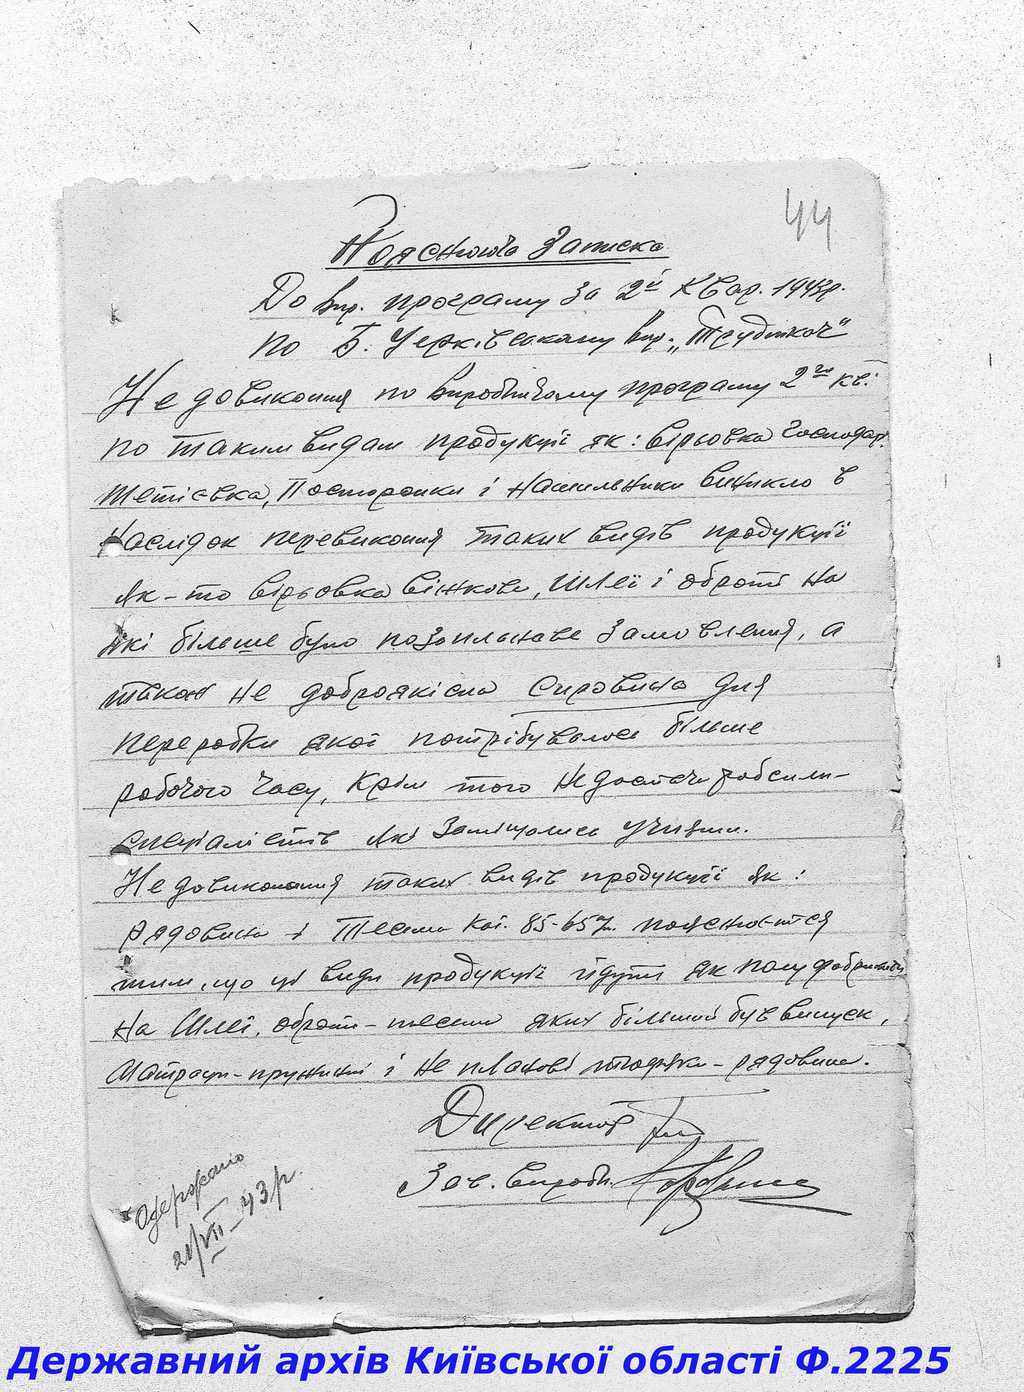 44
Пояснююча Записка
До вир. програму за 2й Квар. 1943р.
по Б. Церківському вир. „Трудівник"
Не довиконня по виробничому програму 2го кв.
по таким видам продукції як: вірьовка господар.
Посторонки і нашильники виникло в
наслідок перевиконня таких видів продукції
як-то вірьовка віжкова, Шлеї і оброті на
які більше було позапланове замовлення, а
також не доброякісна сировина для
переробки якої потрібувалось більше
робочого часу, Крім того недостачи робсили-
спеціалістів які Заміщались учнями.
Не довиконання таких видів продукції як:
рядовина і Тесьма 85-65% пояснюється
тим, що ці види продукції йдуть як полуфабрикати
на Шлеї, оброти-тесьми яких більший був випуск,
Матраци-пружинні і не планові рядовина.
Директор
Зав. виробн.
Одержано
21/VII-43р.
Державний архів Київської області Ф.2225